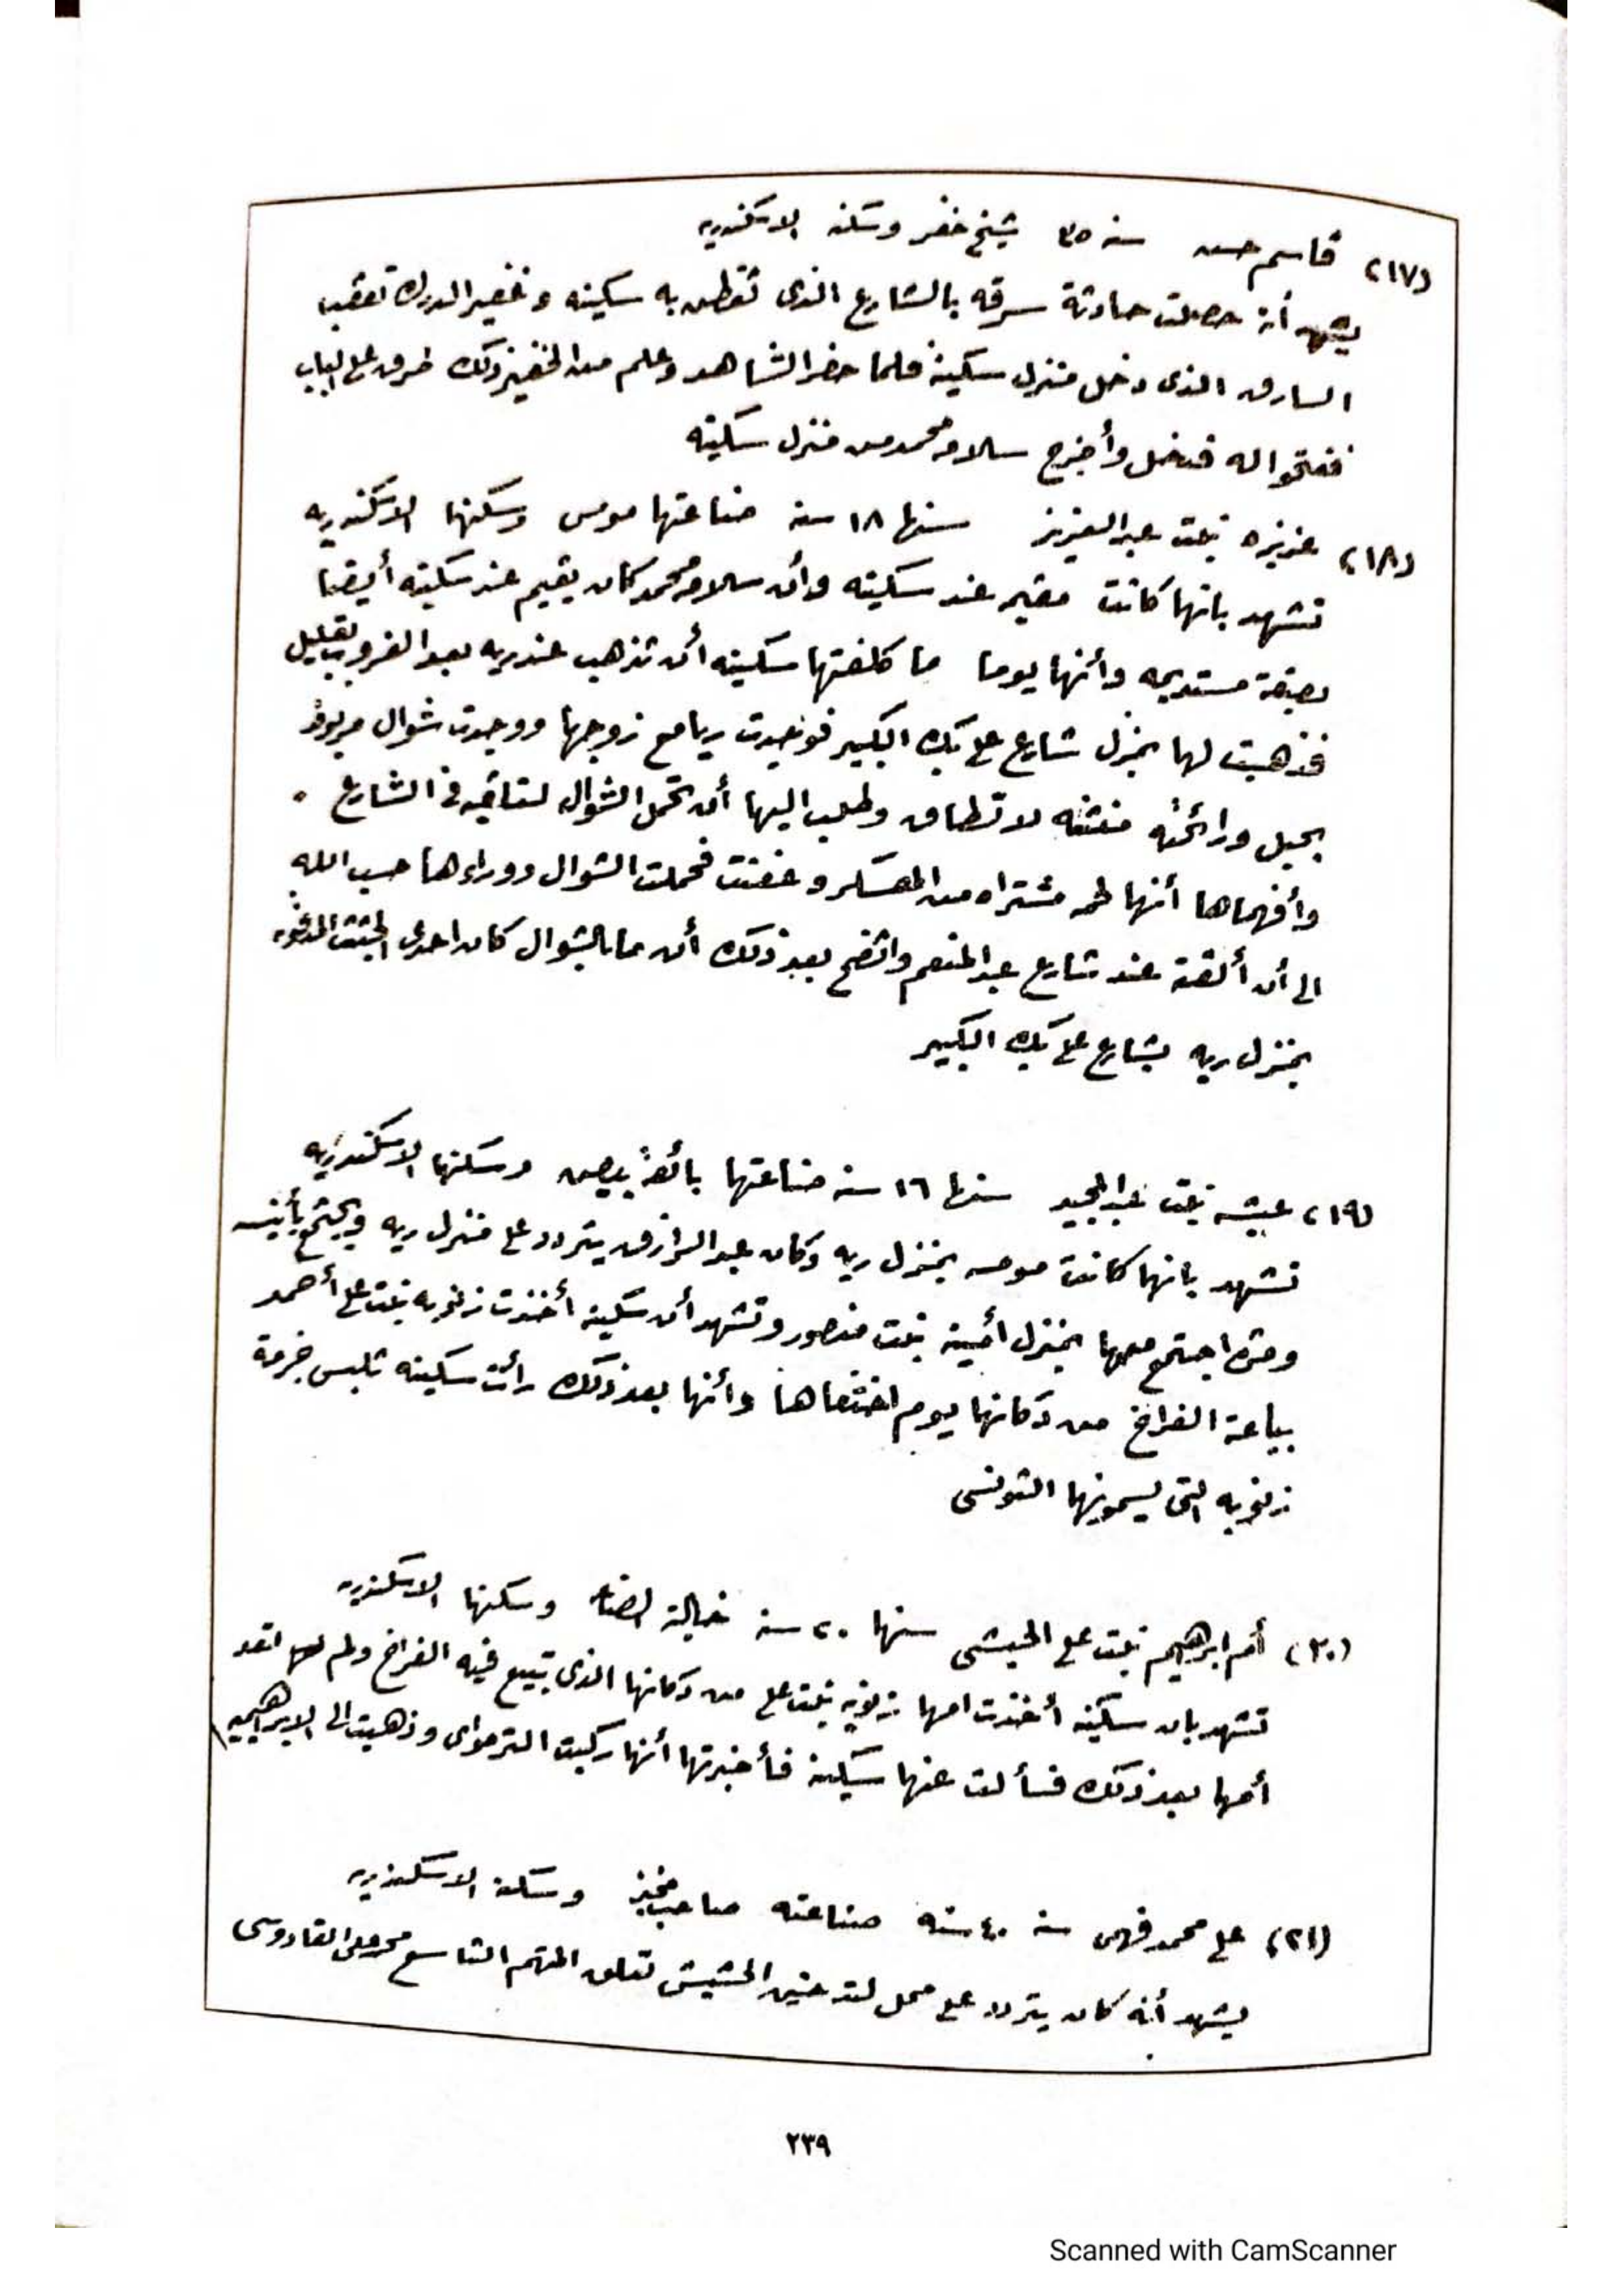 (١٧) قاسم حسن سنه ٣٥ شيخ خفر وسكنه الاسكندريه
يشهد أنه حصلت حادثة سرقه بالشارع الذى تقطن به سكينه وخفير الدرك تعقب
السارق الذى دخل منزل سكينة فلما حضر الشاهد وعلم من الخفير ذلك طرق على الباب
ففتحوا له فدخل وأخرج سلامه محمد من منزل سكينه
(١٨) عزيزه بنت عبد العزيز سنها ١٨ سنه صناعتها مومس وسكنها الاسكندريه
تشهد بانها كانت مقيمه عند سكينه وأن سلامه محمد كان يقيم عند سكينه أيضا
بصفة مستديمه وأنها يوما ما كلفتها سكينه أن تذهب عند ريه بعد الغروب بقليل
فذهبت لها بمنزل شارع على بك الكبير فوجدت ريا مع زوجها ووجدت شوال مربوط
بحبل ورائحته منتنه لا تطاق وطلب اليها أن تحمل الشوال لتلقيه فى الشارع .
وأفهماها أنها لحمه مشتراه من المعسكر وعفنت فحملت الشوال ووراءها حسب الله
الى أن ألقته عند شارع عبد المنعم واتضح بعد ذلك أن ما بالشوال كان احدى الجثث المدفونه
بمنزل ريه بشارع على بك الكبير
(١٩) عيشه بنت عبد المجيد سنها ١٦ سنه صناعتها بائعة بيض وسكنها الاسكندريه
تشهد بانها كانت مومسه بمنزل ريه وكان عبد الرازق يتردد على منزل ريه ويجتمع بأنيسه
ومره اجتمع معها بمنزل أمينه بنت منصور وتشهد أن سكينه أخذت زنوبه بنت على أحمد
بياعة الفراخ من دكانها يوم اختفاها وأنها بعد ذلك رأت سكينه تلبس جزمة
زنوبه التى يسمونها التونسى
(٢٠) أم ابراهيم بنت على الحبشى سنها ٢٠ سنه خالية الصناعه وسكنها الاسكندريه
تشهد بان سكينه أخذت امها زنوبه بنت على من دكانها الذى تبيع فيه الفراخ ولم تعد
أمها بعد ذلك فسألت عنها سكينه فأخبرتها أنها ركبت الترمواى وذهبت الى الابراهيميه
(٢١) على محمد فهمى سنه ٤٠ سنه صناعته صاحب مخبز وسكنه الاسكندريه
يشهد أنه كان يتردد على محل لتدخين الحشيش تعلق المتهم التاسع محمد على القادوسى
٢٣٩
Scanned with CamScanner